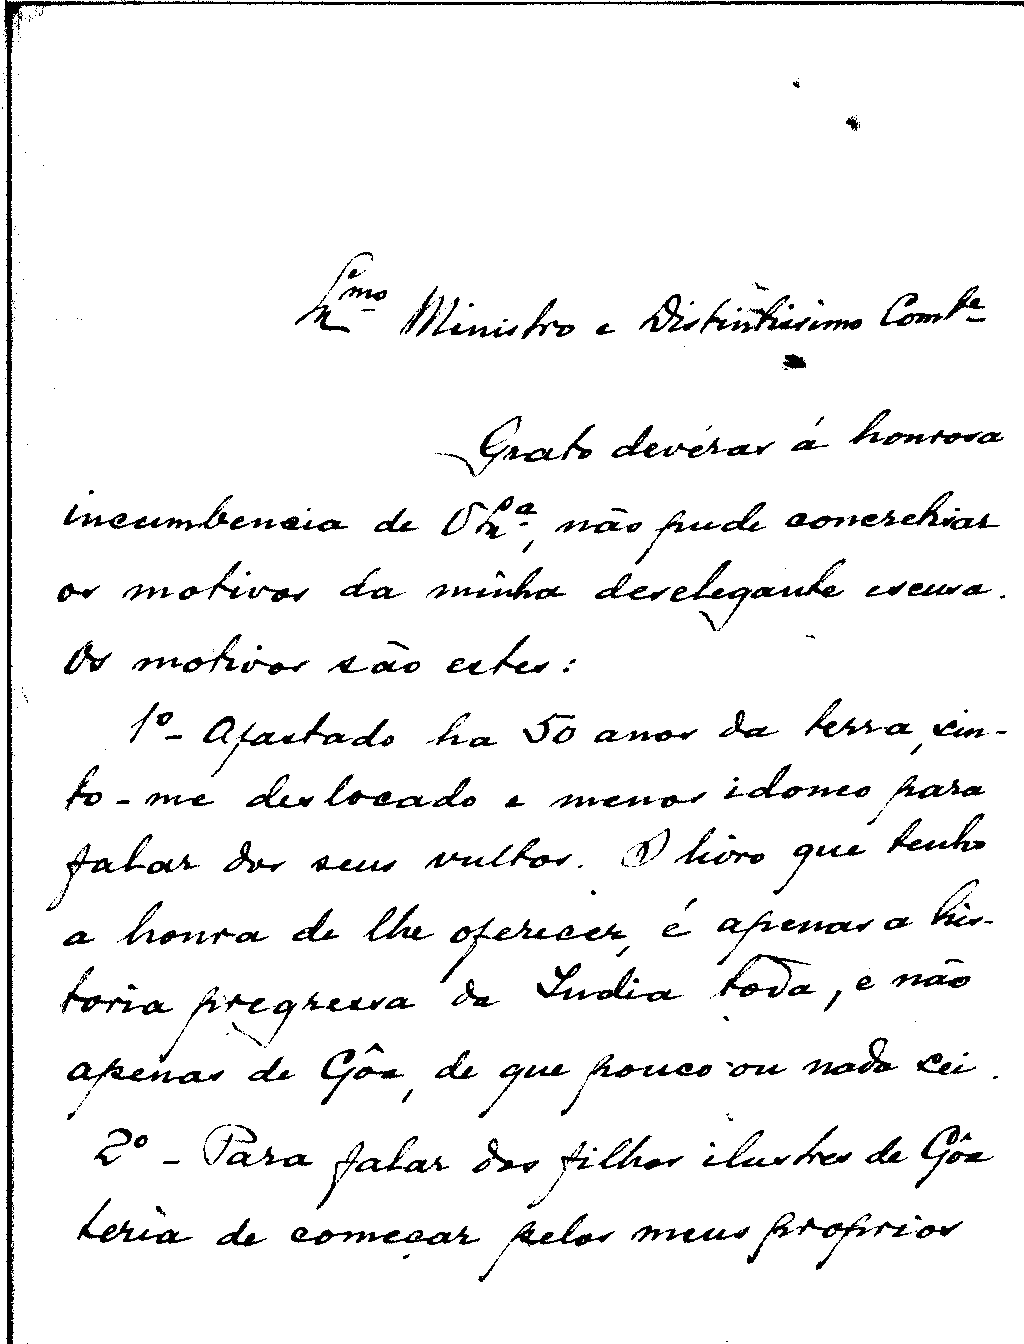 Exmo Ministro e Distintissimo Comte
Grato devéras á honrosa
incumbencia de V Exa, não pude concretisar
os motivos da minha deselegante escusa.
Os motivos são estes:
1º - Afastado ha 50 anos da terra, sin-
to-me deslocado e menos idoneo para
falar dos seus vultos. O livro que tenho
a honra de lhe oferecer, é apenas a his-
toria pregressa da India toda, e não
apenas de Gôa, de que pouco ou nada sei.
2º - Para falar dos filhos ilustres de Gôa
teria de começar pelos meus proprios